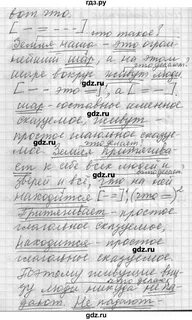 вот что.
[ — = - - - ] что такое?
Земля наша – это огром-
нейший шар, а на этом
что делают?
шаре вокруг живут люди
[ — - это = ], а [ — = ].
шар – составное именное
сказуемое, живут –
простое глагольное сказуе-
мое. Земля притягива-
что делает?
ет к себе всех людей и
зверей и всё, что на ней
находится [ — = ], (что = )
Притягивает – простое
глагольное сказуемое,
находится – простое
глагольное сказуемое.
Поэтому живущие вни-
что делают?
зу люди никуда не па-
дают. Не падают –